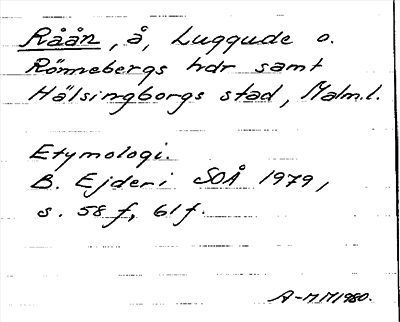 Råån, å, Luggude o.
Rönnebergs hdr samt
Hälsingborgs stad, Malm.l.
Etymologi.
B. Ejder i SOÅ 1979,
s. 58 f, 61 f.
A-M.M 1980.